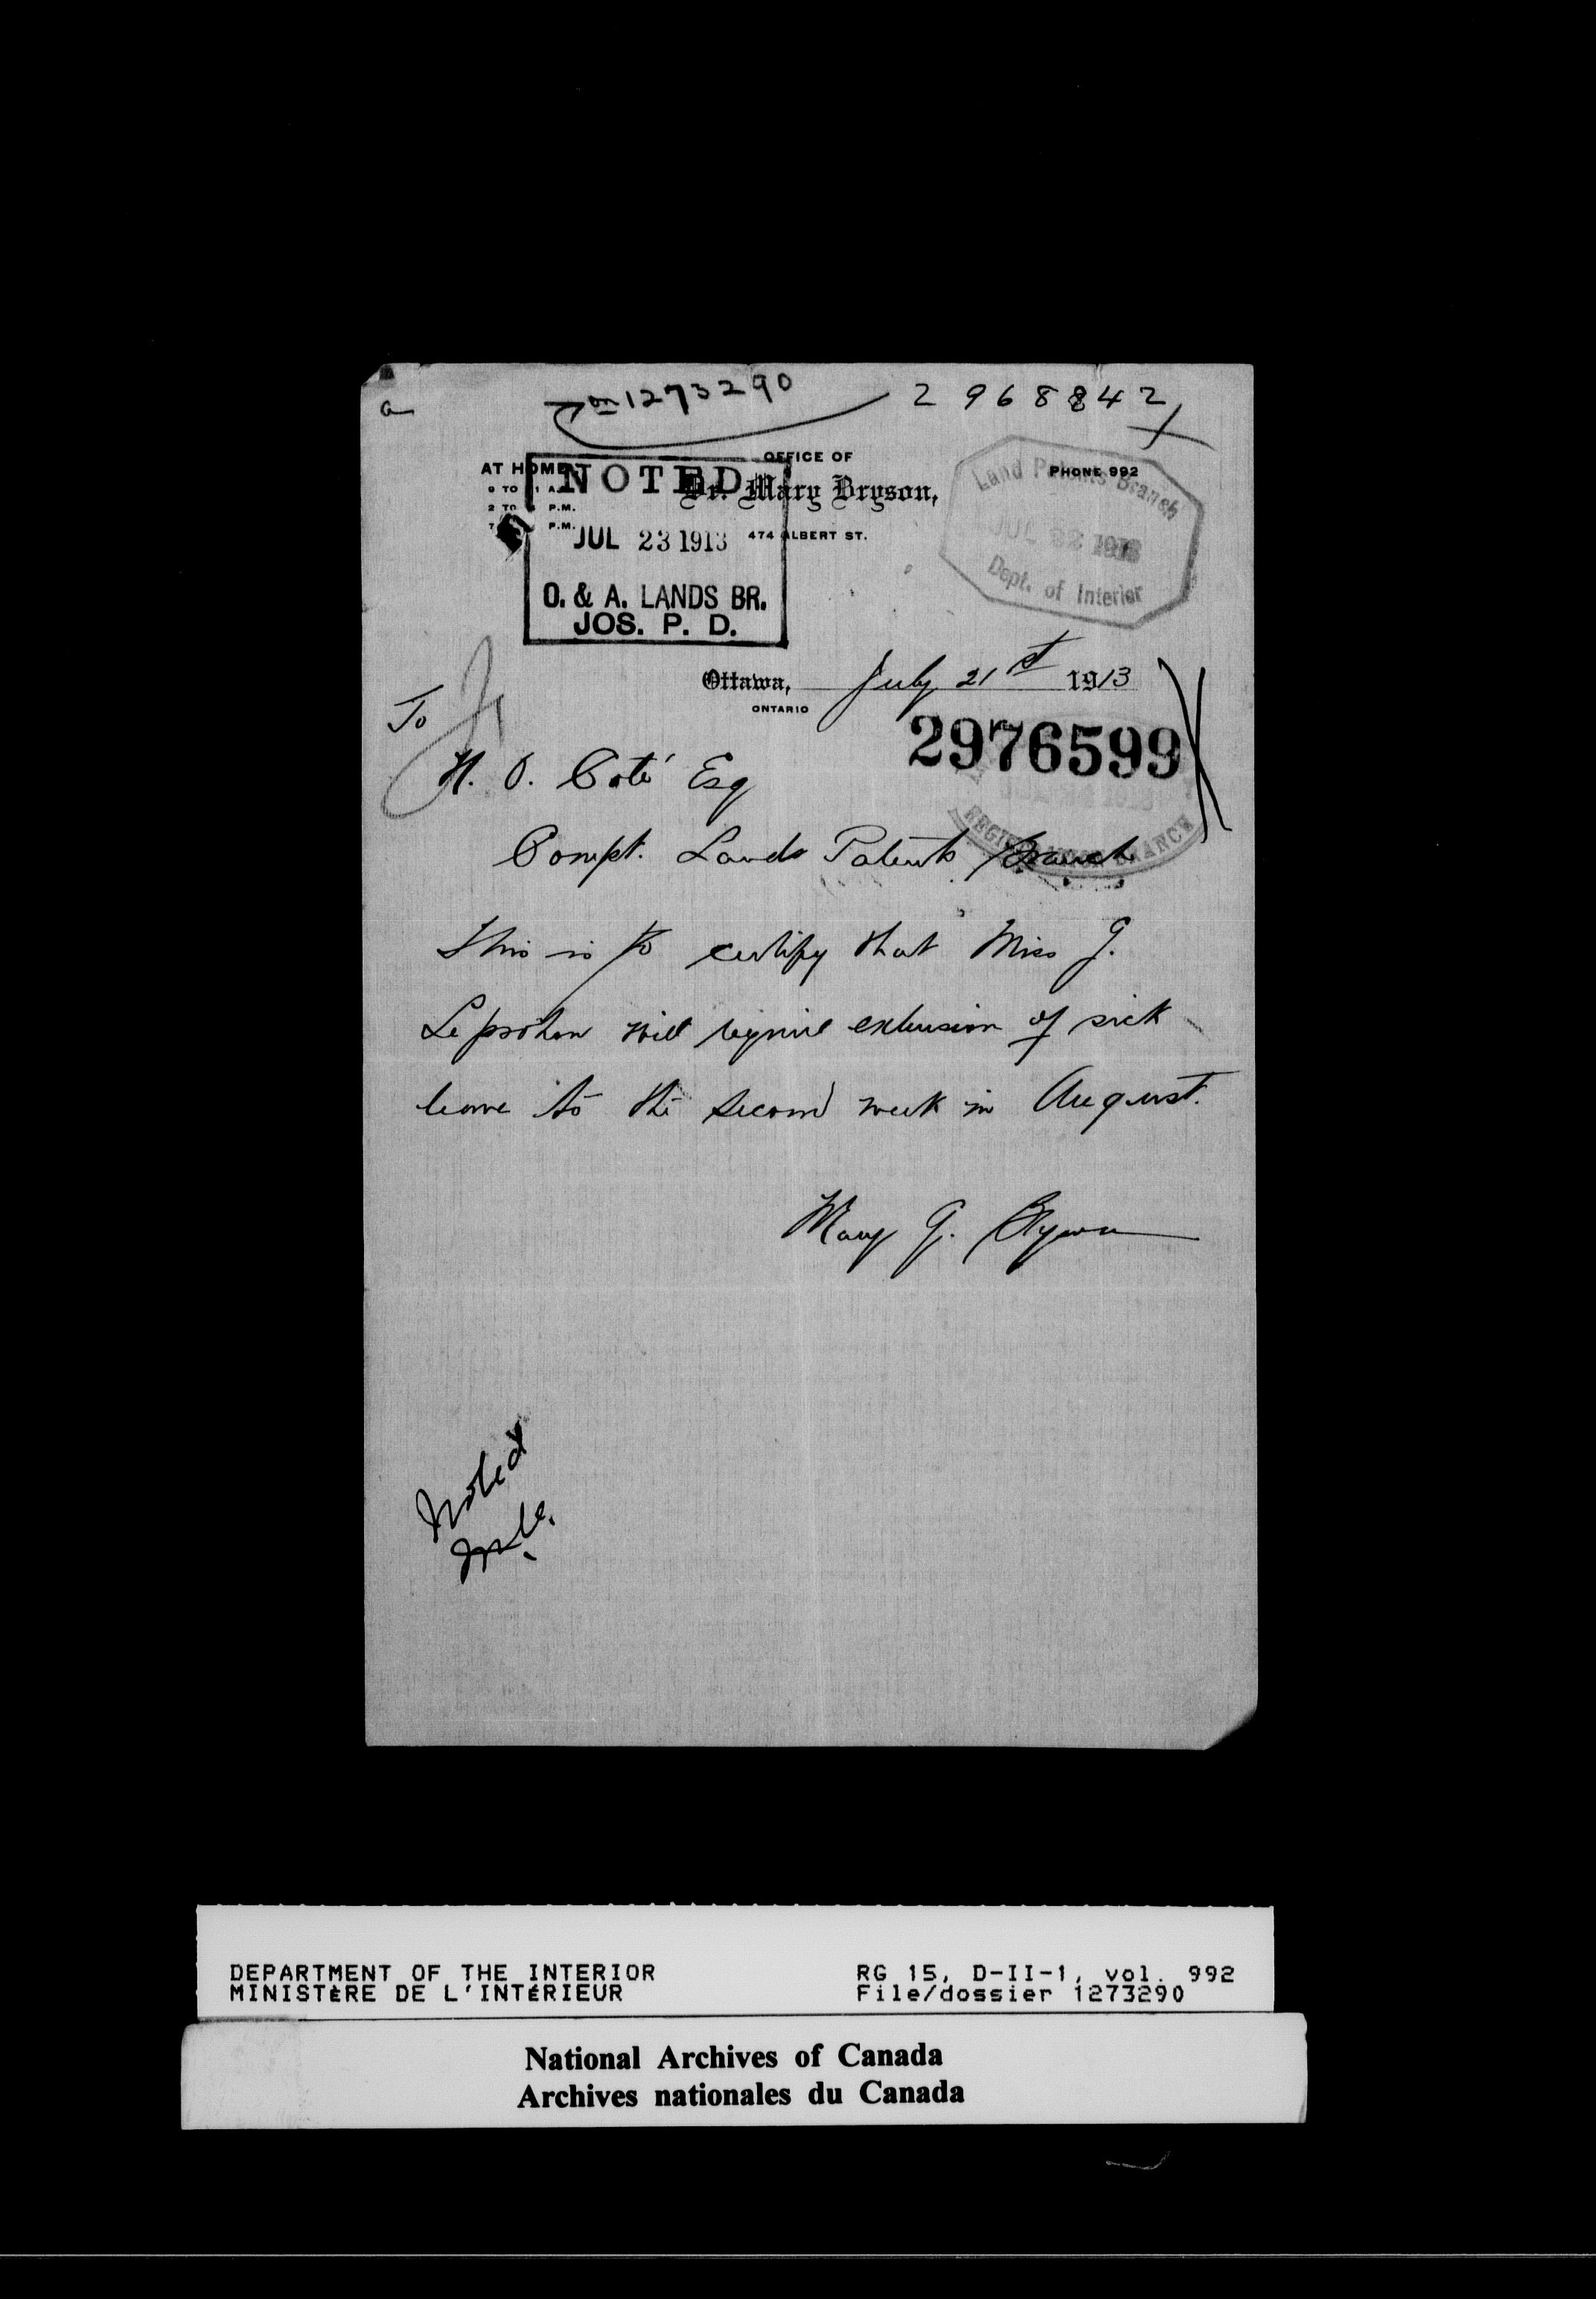 a
on 1273290
2968842
OFFICE OF
AT HOME
PHONE 992
Dr. Mary Bryson,
9 TO 11 A.M.
2 TO P.M.
7 P.M.
474 ALBERT ST.
NOTED
JUL 23 1913
O. & A. LANDS BR.
JOS. P. D.
Land Patents Branch
JUL 22 1913
Dept. of Interior
Ottawa, July 21st 1913
ONTARIO
2976599
REGISTRATION BRANCH
To
N. O. Coté Esq
Compt. Lands Patents Branch
This is to certify that Miss G.
Leprohon will require extension of sick
leave to the second week in August.
Mary G. Bryson
Noted
DEPARTMENT OF THE INTERIOR
MINISTÈRE DE L'INTÉRIEUR
RG 15, D-II-1, vol. 992
File/dossier 1273290
National Archives of Canada
Archives nationales du Canada